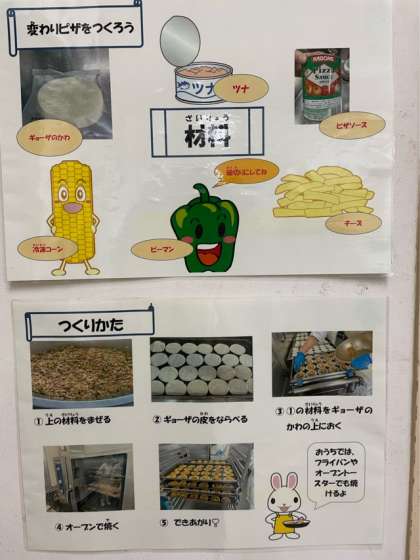 変わりピザをつくろう
ツナ
ツナ
KAGOME
Pizza
Sauce
ギョーザのかわ
ピザソース
ざいりょう
材料
冷凍コーン
ピーマン
チーズ
つくりかた
①上の材料をまぜる
②ギョーザの皮をならべる
③①の材料をギョーザの
かわの上におく
④オーブンで焼く
⑤できあがり
おうちでは、
フライパンや
オーブントー
スターでも焼
けるよ